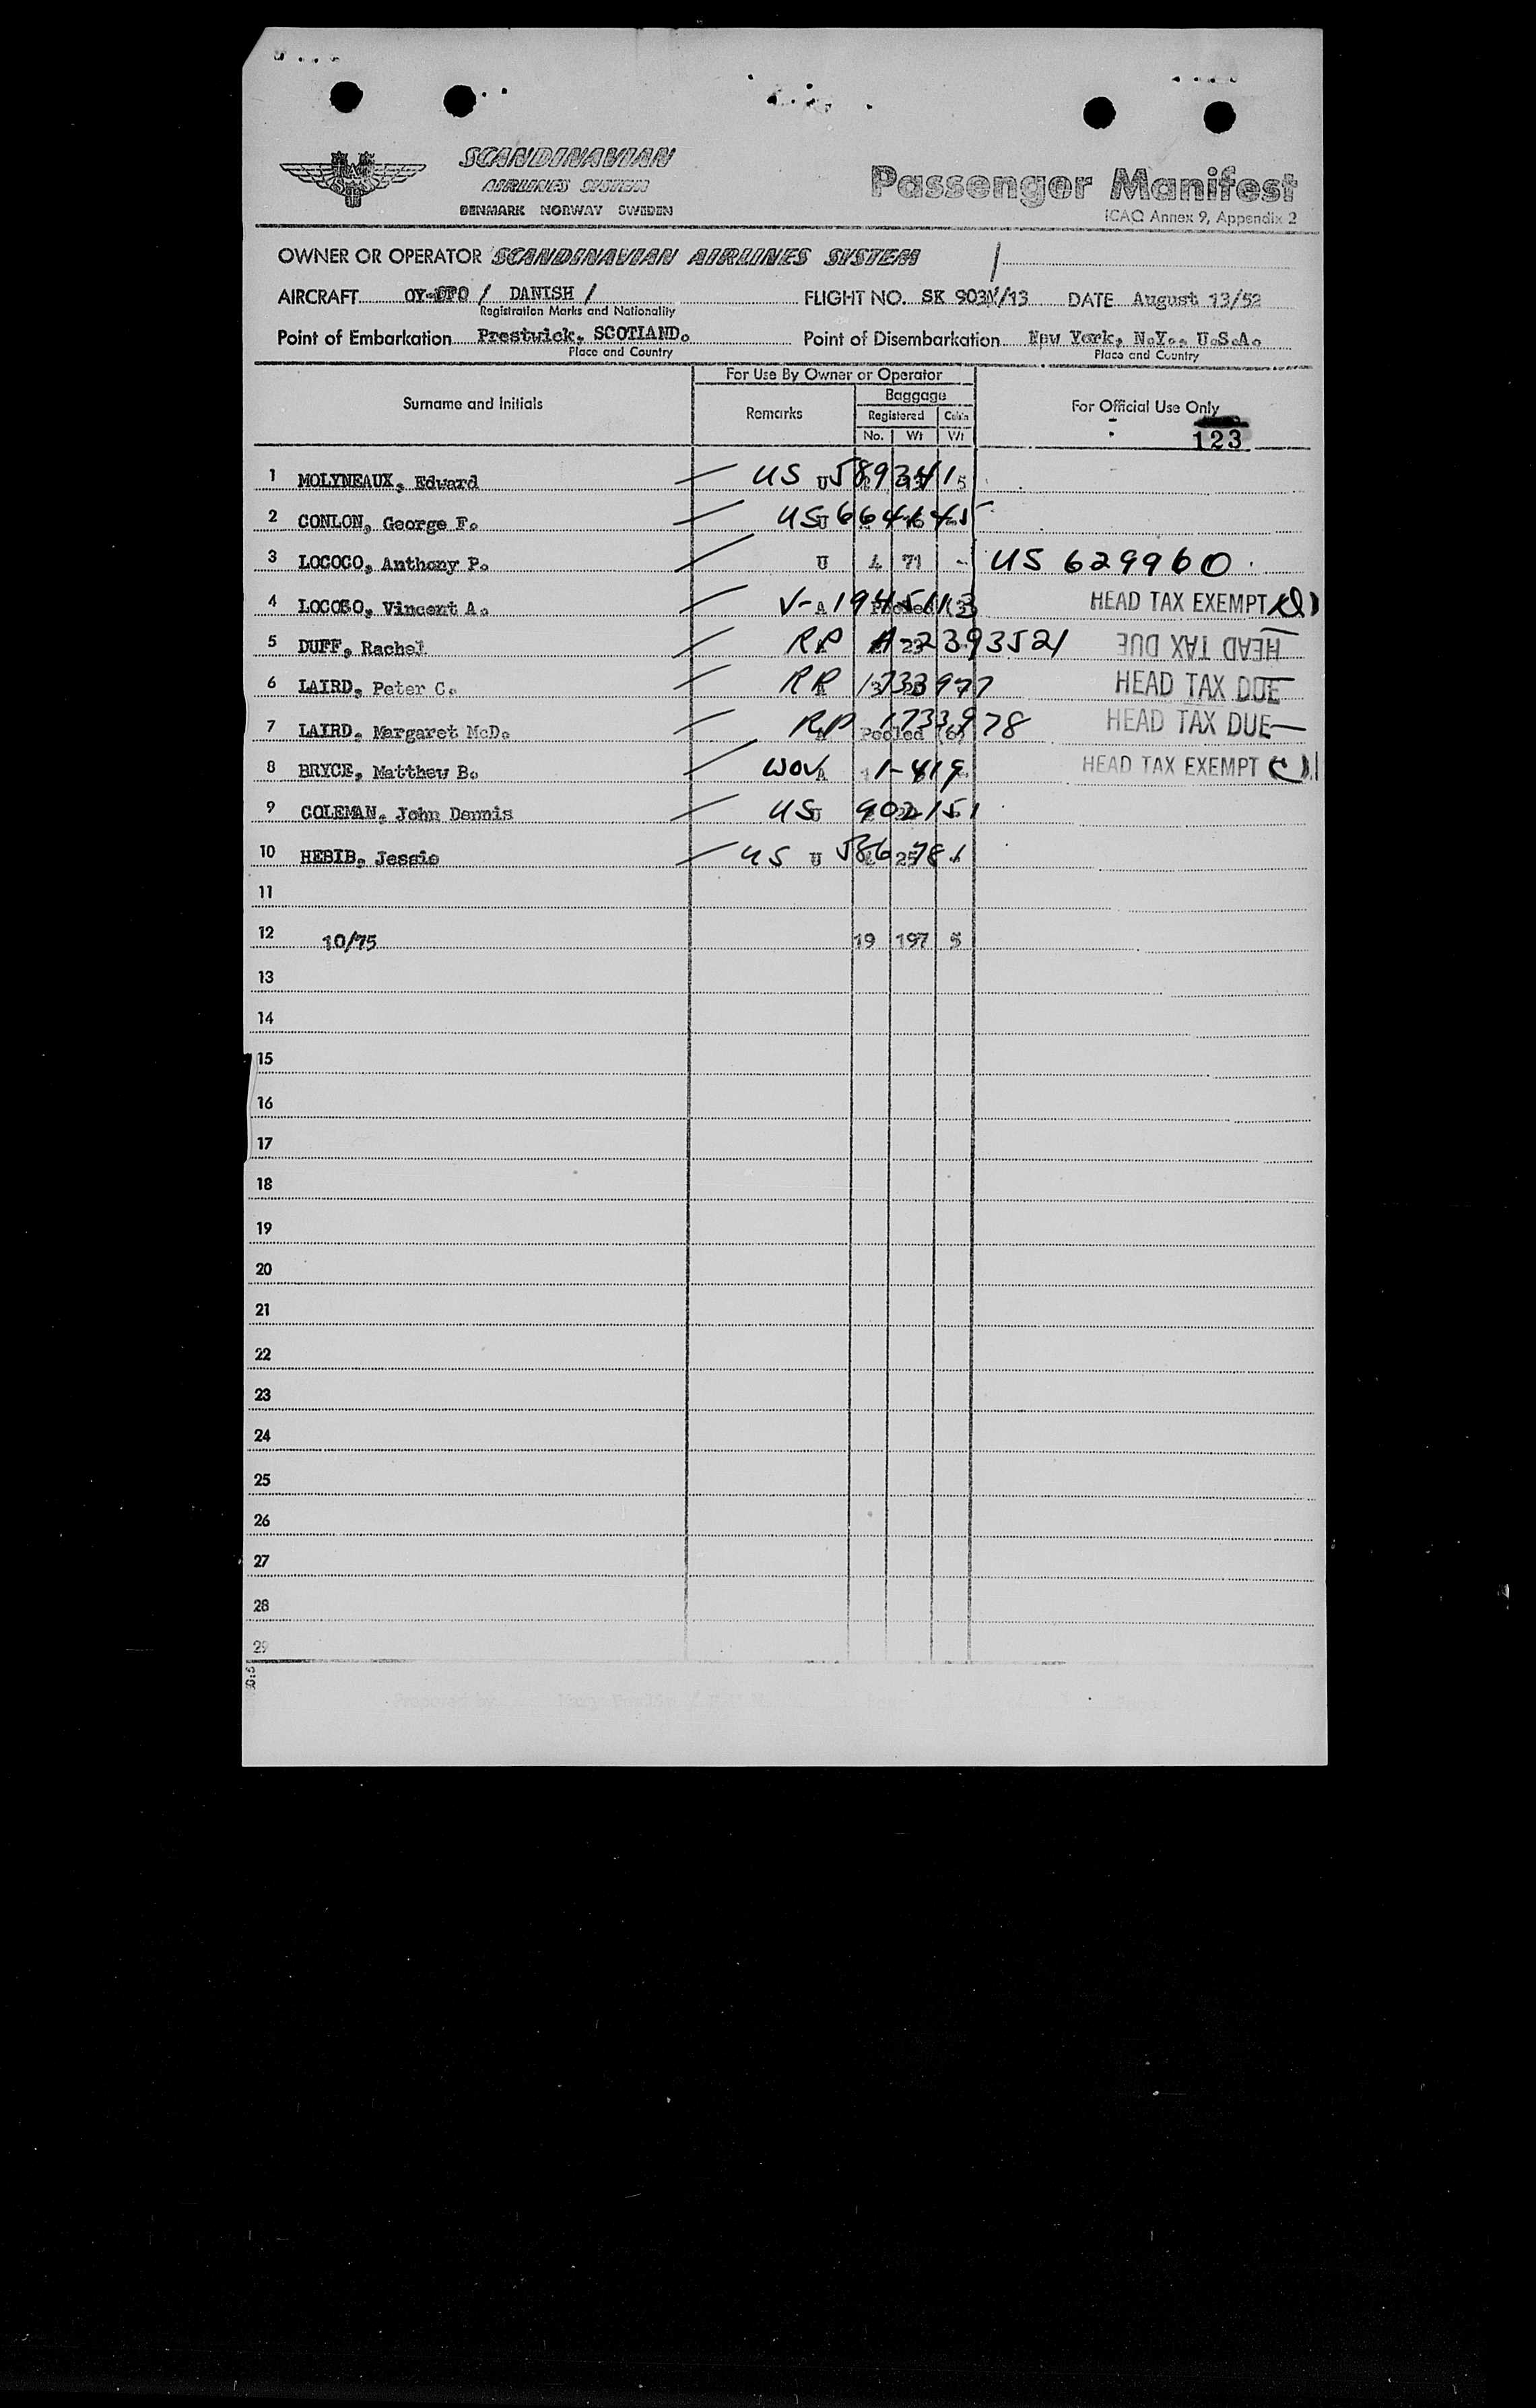 SCANDINAVIAN
AIRLINES SYSTEM
DENMARK NORWAY SWEDEN
Passenger Manifest
ICAO Annex 9, Appendix 2
OWNER OR OPERATOR SCANDINAVIAN AIRLINES SYSTEM /
AIRCRAFT / DANISH / FLIGHT NO. SK DATE August 13/52
Registration Marks and Nationality
Point of Embarkation Prestwick, SCOTLAND. Point of Disembarkation New York, N.Y., U.S.A.
Place and Country Place and Country
For Use By Owner or Operator
Surname and Initials Remarks Baggage For Official Use Only
Registered Cabin
No. Wt Wt
123
1 MOLYNEAUX, Edward US U 589341 5
2 CONLON, George F. US U
3 LOCOCO, Anthony P. U 4 71 - US 629960
4 Vincent A. A HEAD TAX EXEMPT
5 DUFF, Rachel RP A-2393521 HEAD TAX DUE
6 LAIRD, Peter C. RP 1733977 HEAD TAX DUE
7 LAIRD, Margaret McD. RP 1733978 Pooled (6) HEAD TAX DUE
8 BRYCE, Matthew B. A HEAD TAX EXEMPT
9 COLEMAN, John Dennis US U 902151
10 HEBIB, Jessie US U
11
12 10/75 19 197 5
13
14
15
16
17
18
19
20
21
22
23
24
25
26
27
28
29